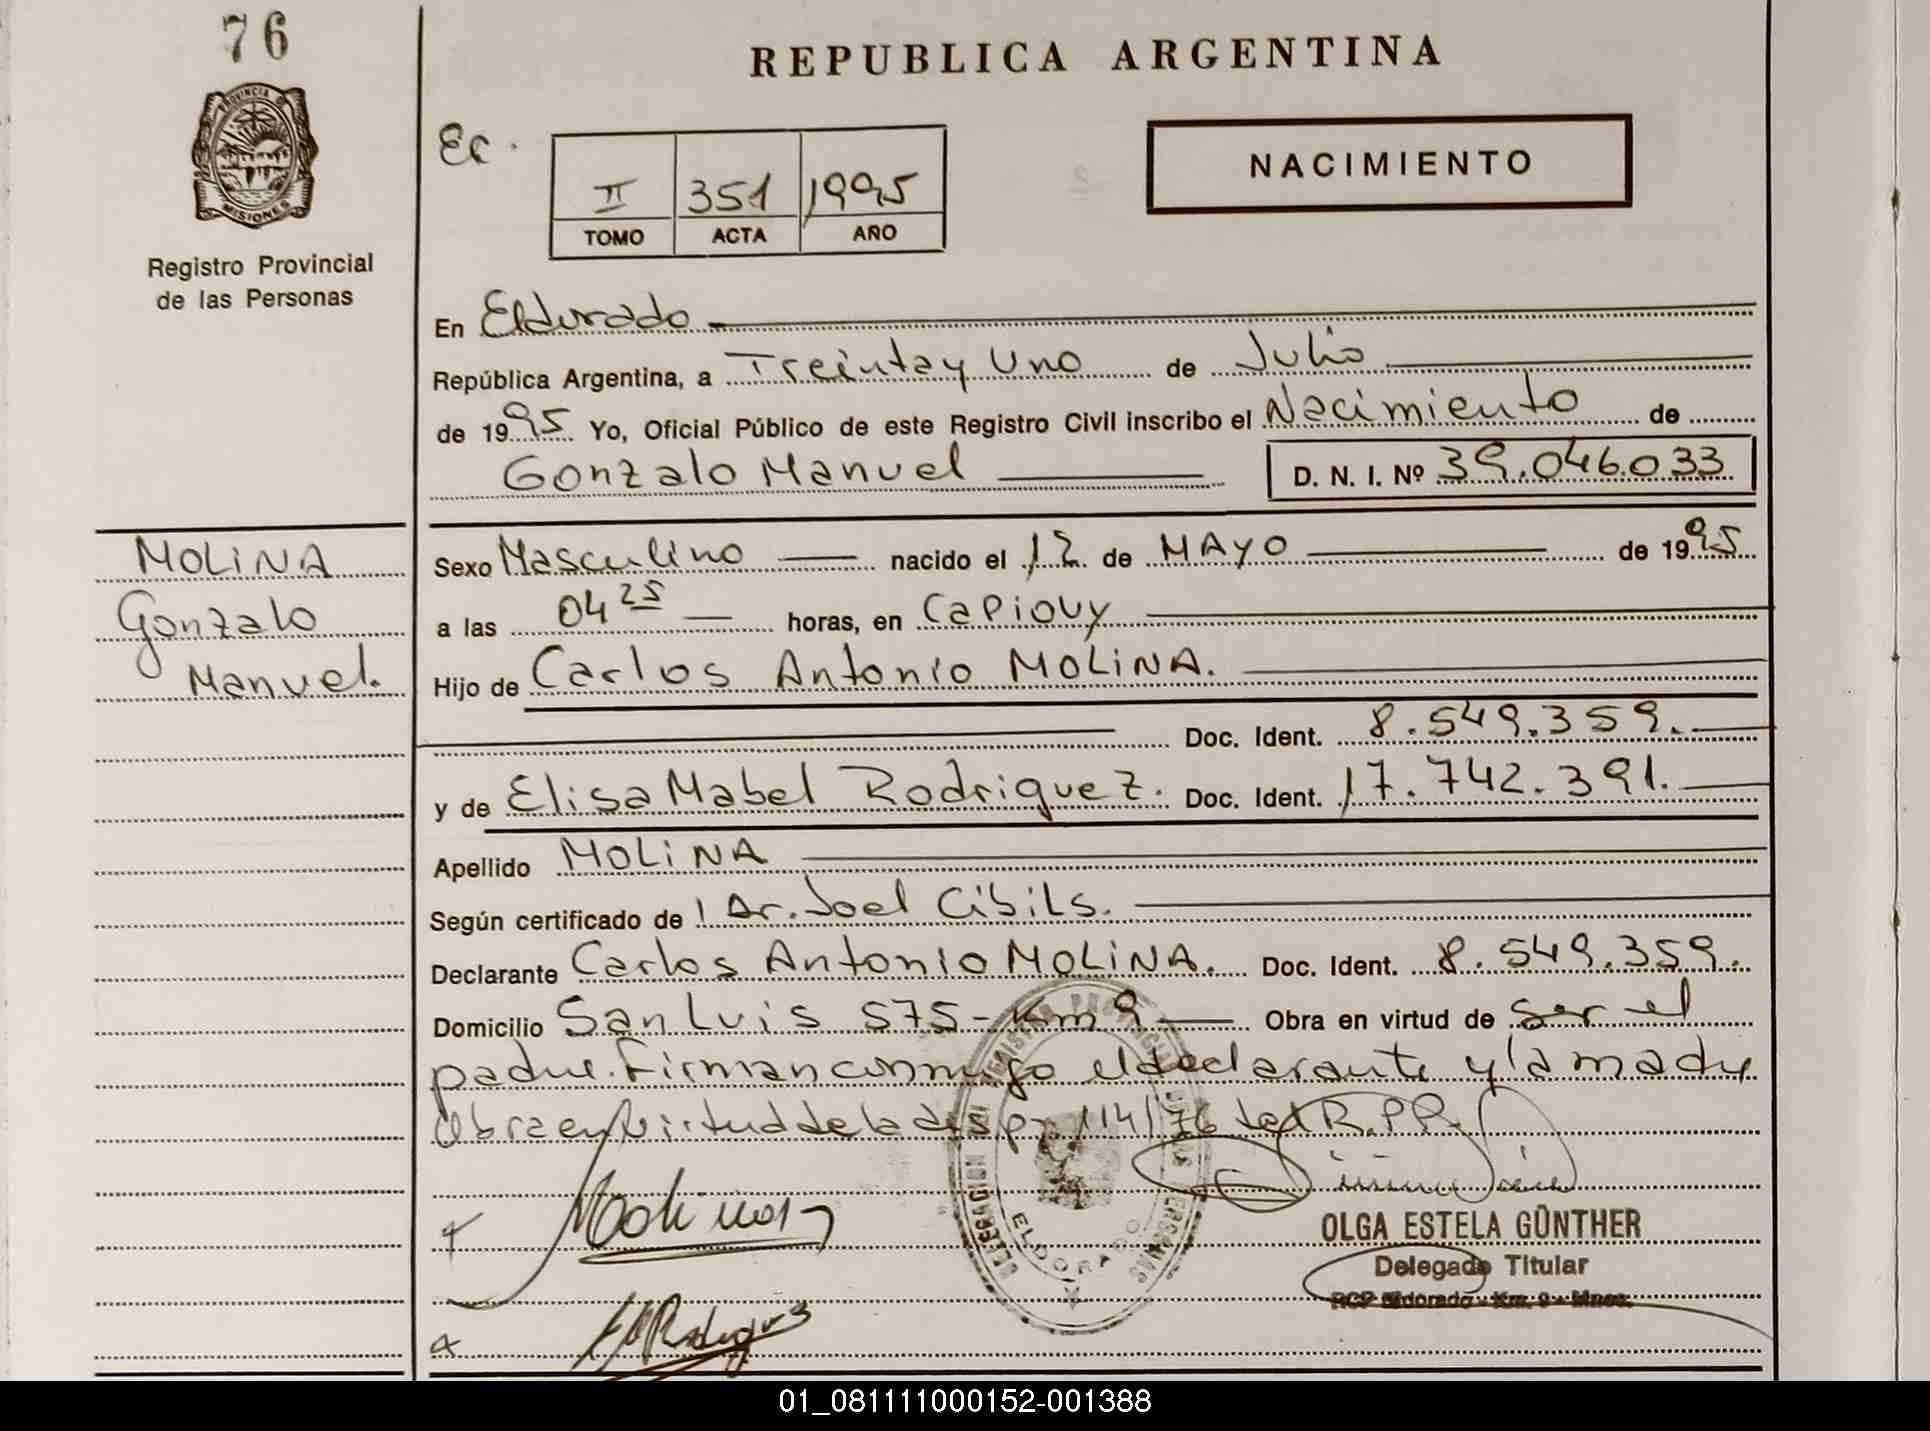 76
REPUBLICA ARGENTINA
PROVINCIA DE
MISIONES
Registro Provincial
de las Personas
Ec.
II 351 1995
TOMO ACTA AÑO
NACIMIENTO
En Eldorado
República Argentina, a Treinta y Uno de Julio
de 1995 Yo, Oficial Público de este Registro Civil inscribo el Nacimiento de
Gonzalo Manuel D. N. I. Nº 39.046.033
MOLINA
Gonzalo
Manuel.
Sexo Masculino nacido el 12 de MAYO de 1995
a las 04 25 horas, en Capiovy
Hijo de Carlos Antonio MOLINA.
Doc. Ident. 8.549.359.
y de Elisa Mabel Rodriguez. Doc. Ident. 17.742.391.
Apellido MOLINA
Según certificado de Dr. Joel Cibils.
Declarante Carlos Antonio MOLINA. Doc. Ident. 8.549.359.
Domicilio San Luis 575 - Km 9 Obra en virtud de ser el
padre. Firman conmigo el declarante y la madre
Obra en virtud de la disp. 114/76 del R.P.P.
Molina
Rodriguez
DELEGACION ELDORADO
OLGA ESTELA GÜNTHER
Delegado Titular
RCP Eldorado - Km. 9 - Mnes.
01_081111000152-001388